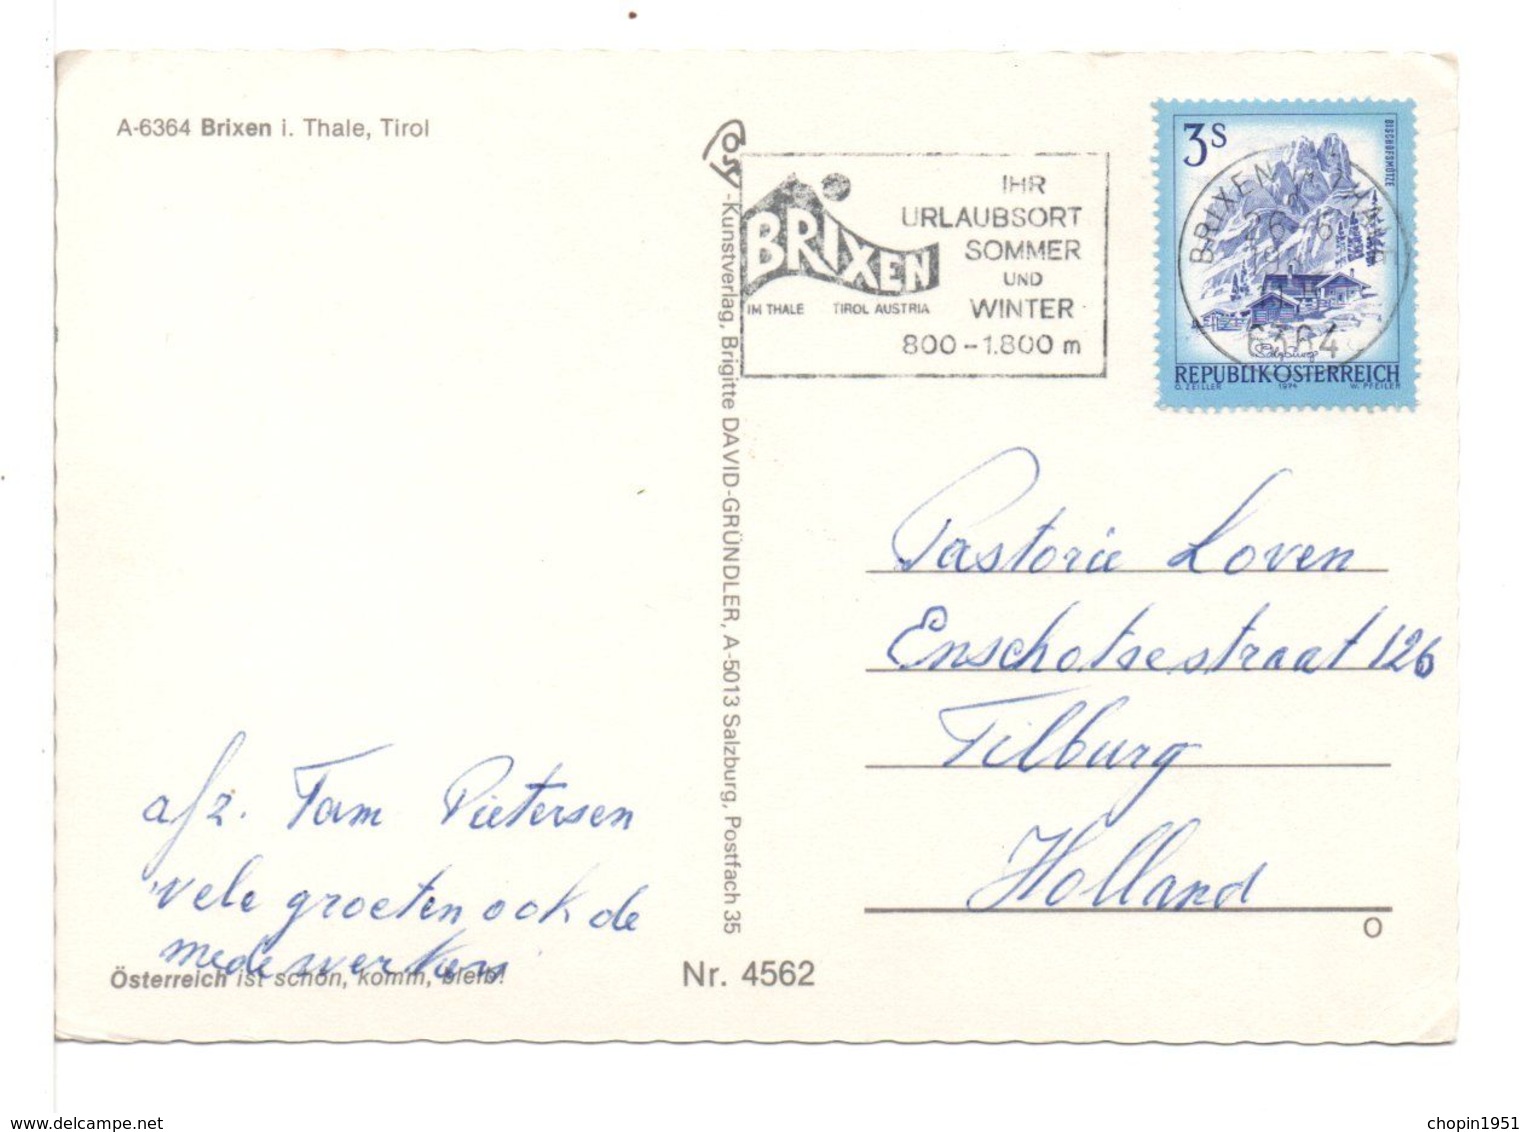 A-6364 Brixen i. Thale, Tirol
Cosy
-Kunstverlag, Brigitte DAVID-GRÜNDLER, A-5013 Salzburg, Postfach 35
BRIXEN
IM THALE TIROL AUSTRIA
IHR
URLAUBSORT
SOMMER
UND
WINTER
800-1.800 m
3S
BISCHOFSMÜTZE
BRIXEN
26.-6.
6364
Salzburg
REPUBLIK ÖSTERREICH
O. ZEILLER 1974 W. PFEILER
Pastorie Loven
Enschotsestraat 126
Tilburg
Holland
O
afz. Tom Pietersen
vele groeten ook de
medewerkers
Österreich ist schön, komm, bleib!
Nr. 4562
www.delcampe.net
chopin1951